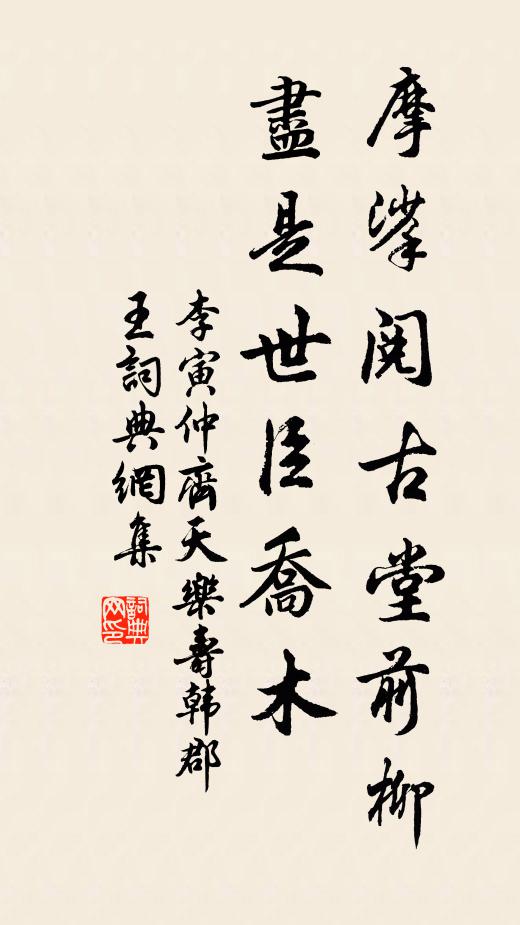 摩挲閱古堂前柳
盡是世臣喬木
李寅仲齊天樂壽韓郡
王詞典網集
詞典網印